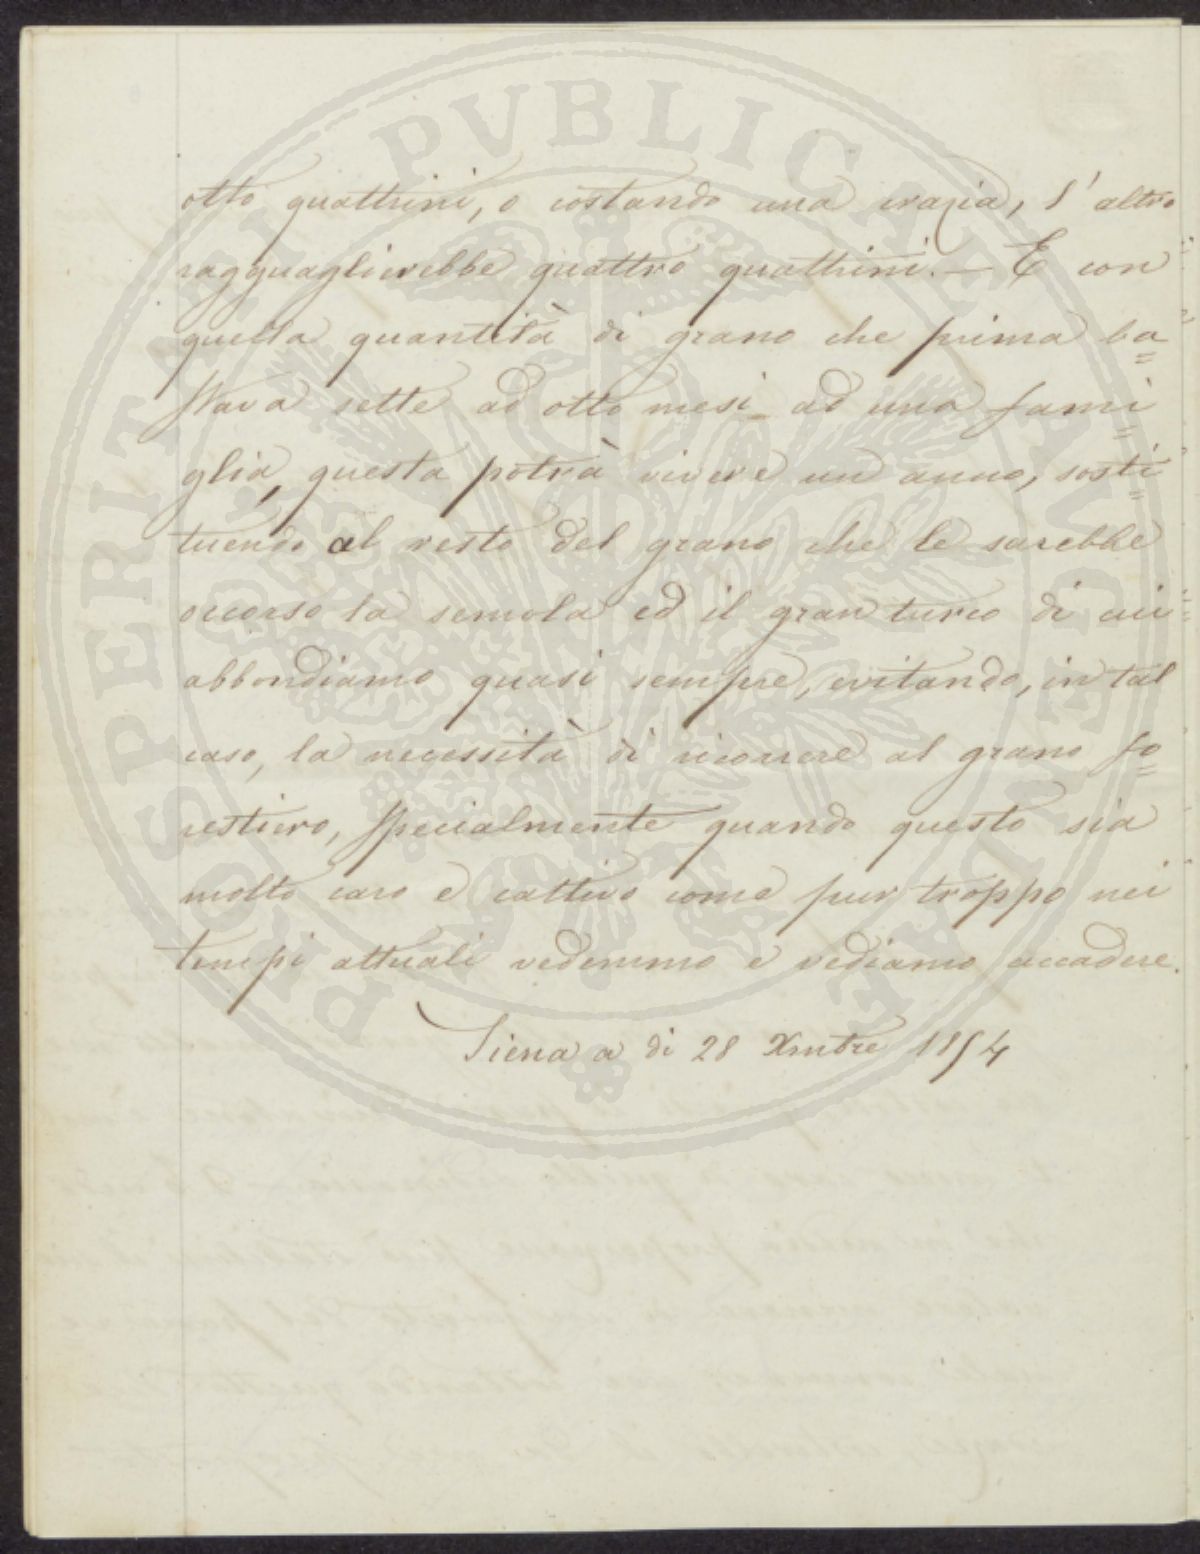 otto quattrini, o costando una crazia, l'altro
ragguaglierebbe quattro quattrini. — E con
quella quantità di grano che prima ba=
stava sette ad otto mesi ad una fami=
glia, questa potrà vivere un anno, sosti=
tuendo al resto del grano che le sarebbe
occorso la semola ed il gran turco di cui
abbondiamo quasi sempre, evitando, in tal
caso, la necessità di ricorrere al grano fo=
restiero, specialmente quando questo sia
molto caro e cattivo come pur troppo nei
tempi attuali vedemmo e vediamo accadere.
Siena a di 28 Xmbre 1854
PROSPERITATI PVBLICAE AVGENDAE